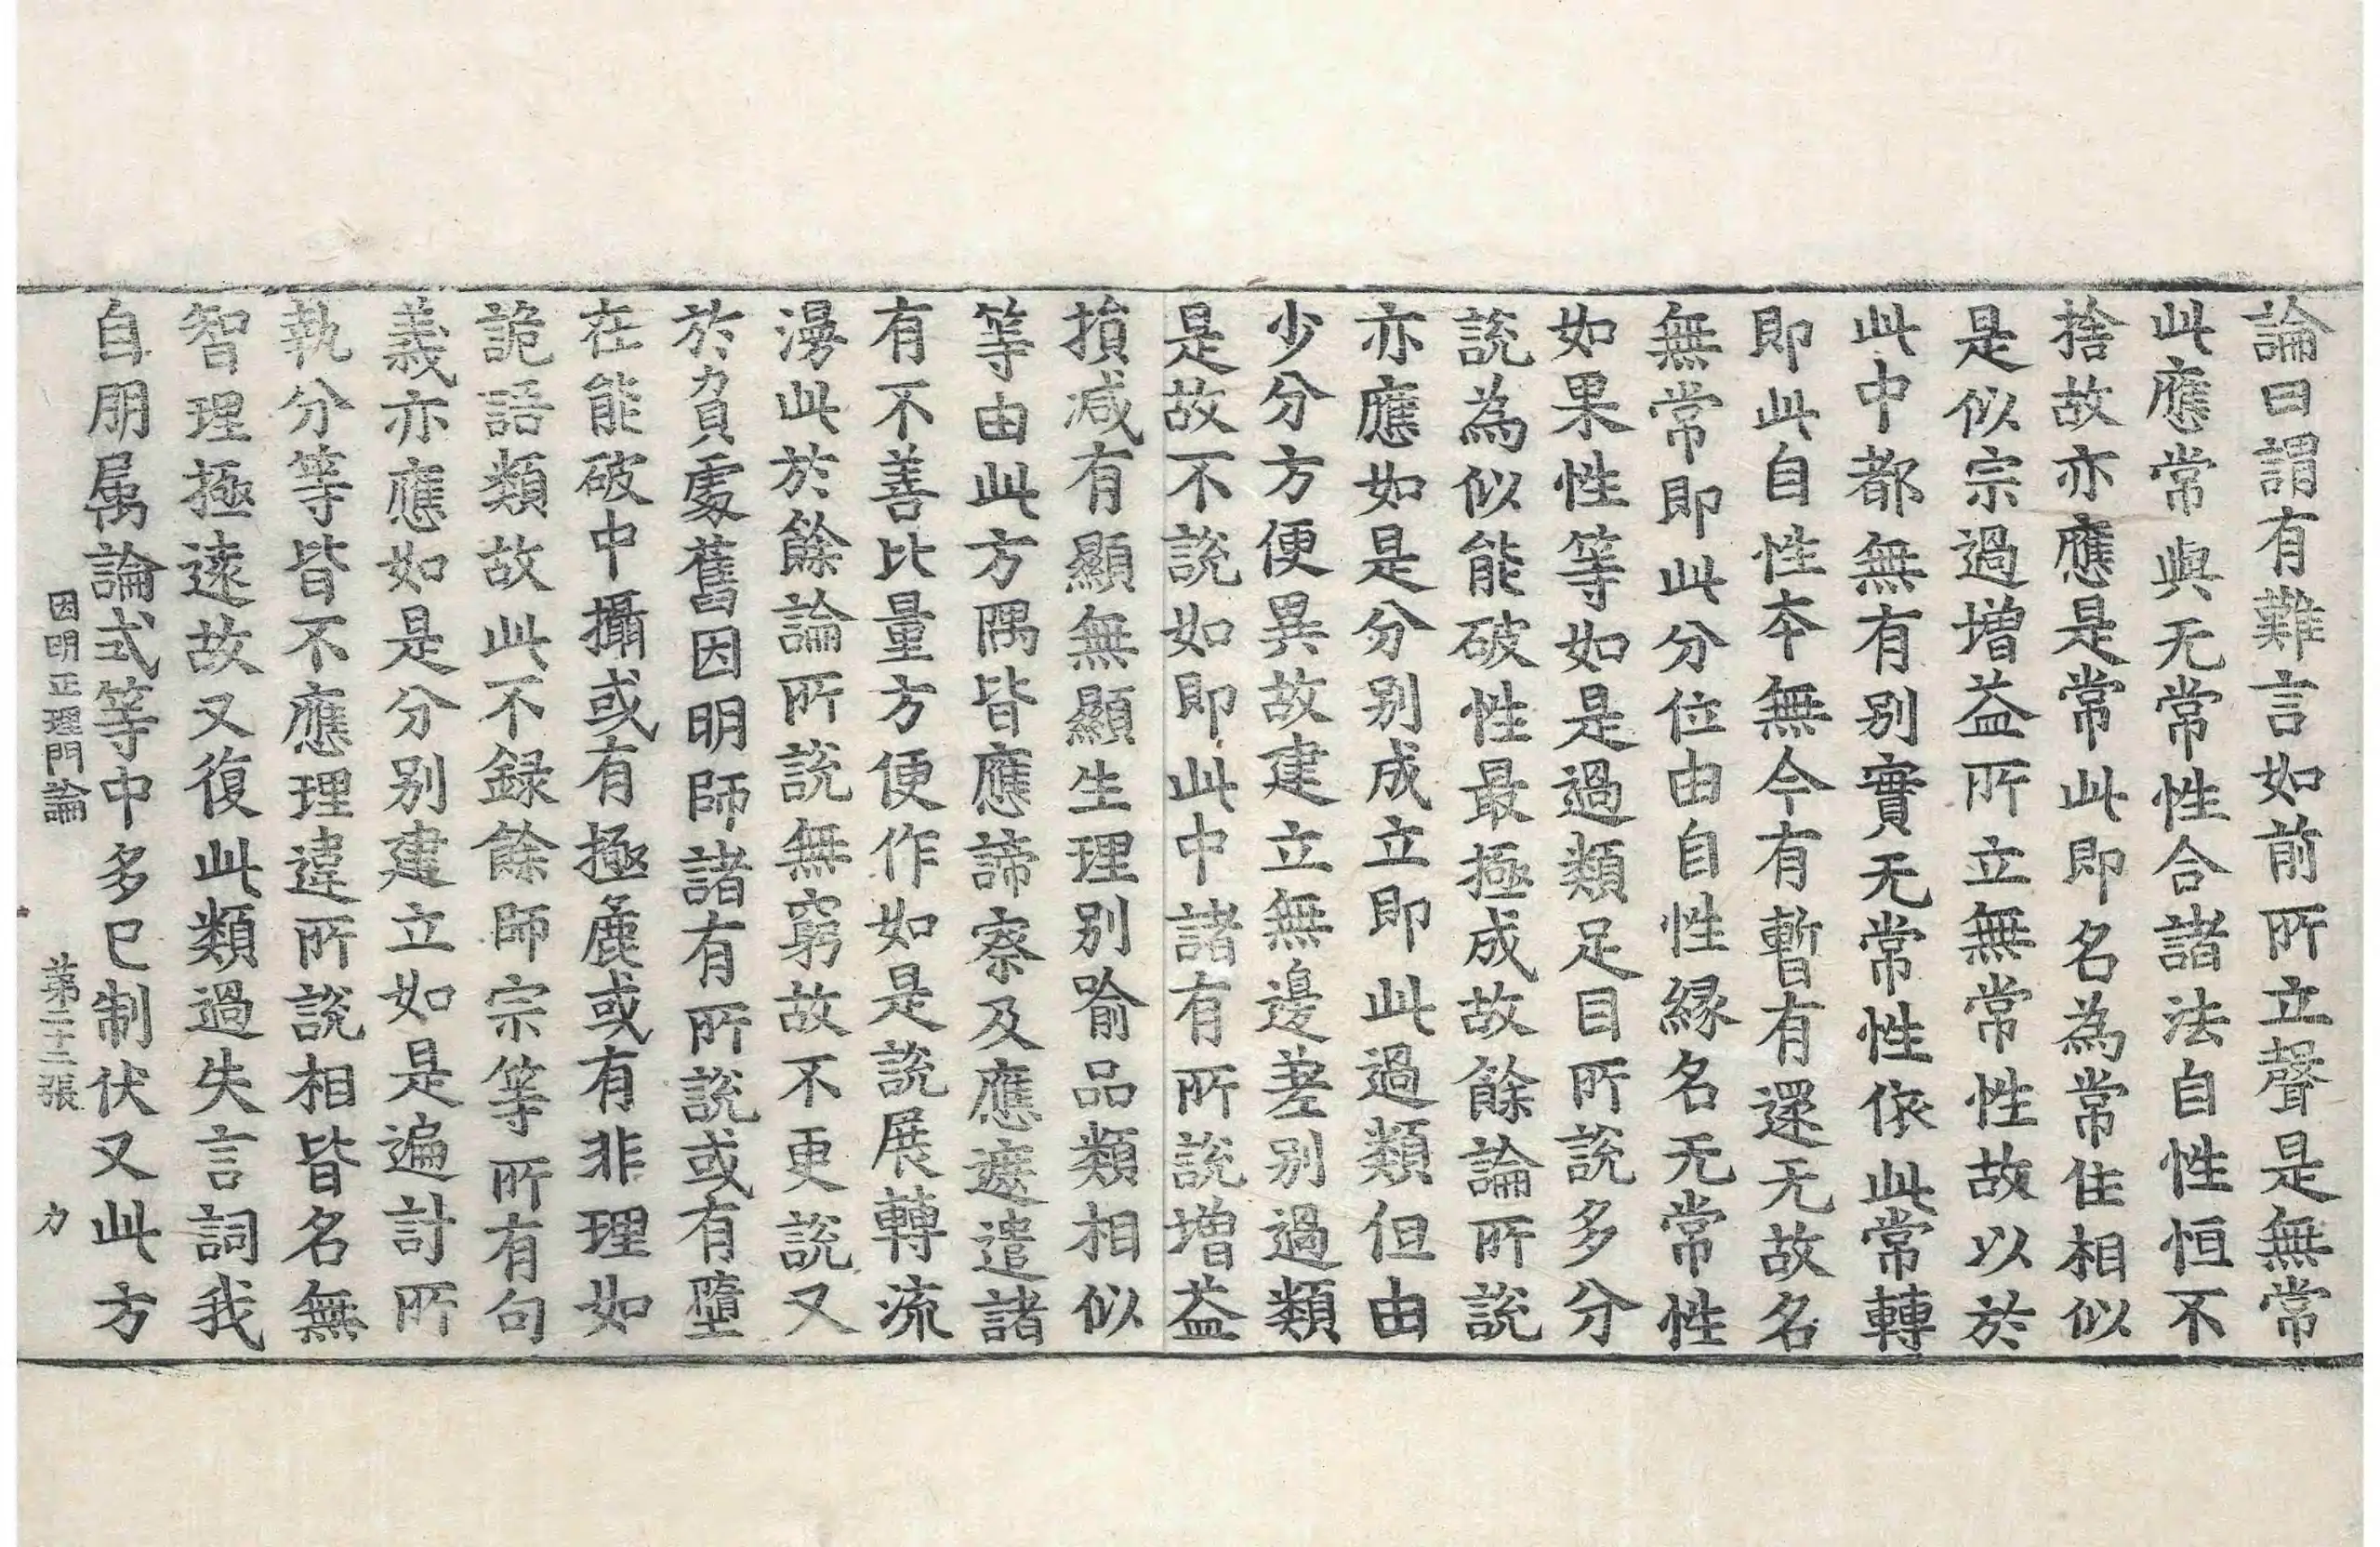 論曰謂有難言如前所立聲是無常
此應常與无常性合諸法自性恒不
捨故亦應是常此即名為常住相似
是似宗過增益所立無常性故以於
此中都無有別實无常性依此常轉
即此自性本無今有暫有還无故名
無常即此分位由自性緣名无常性
如果性等如是過類足目所說多分
說為似能破性最極成故餘論所說
亦應如是分別成立即此過類但由
少分方便異故建立無邊差別過類
是故不說如即此中諸有所說增益
損減有顯無顯生理別喻品類相似
等由此方隅皆應諦察及應遮遣諸
有不善比量方便作如是說展轉流
漫此於餘論所說無窮故不更說又
於負處舊因明師諸有所說或有墮
在能破中攝或有極麁或有非理如
詭語類故此不録餘師宗等所有句
義亦應如是分別建立如是遍計所
執分等皆不應理違所說相皆名無
智理極遠故又復此類過失言詞我
自朋属論式等中多已制伏又此方
因明正理門論　第二十二張　力